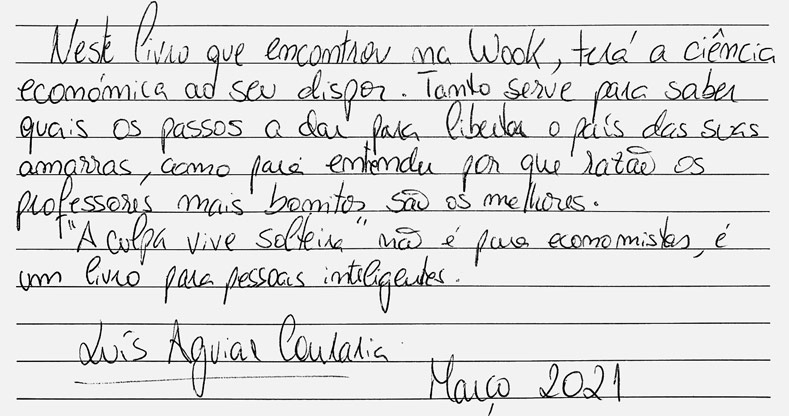 Neste livro que encontrou na Wook, terá a ciência
económica ao seu dispor. Tanto serve para saber
quais os passos a dar para libertar o país das suas
amarras, como para entender por que razão os
professores mais bonitos são os melhores.
"A culpa vive solteira" não é para economistas, é
um livro para pessoas inteligentes.
Luís Aguiar Conraria
Março 2021